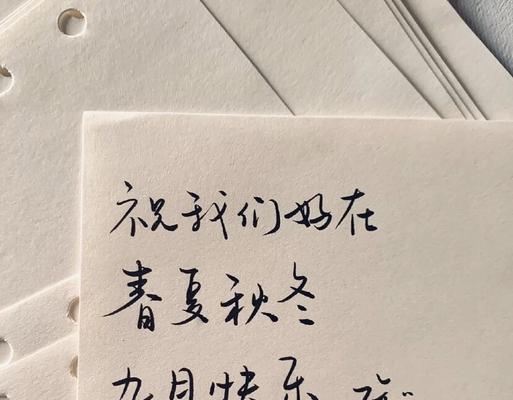 祝我们好在
春夏秋冬
九月快乐